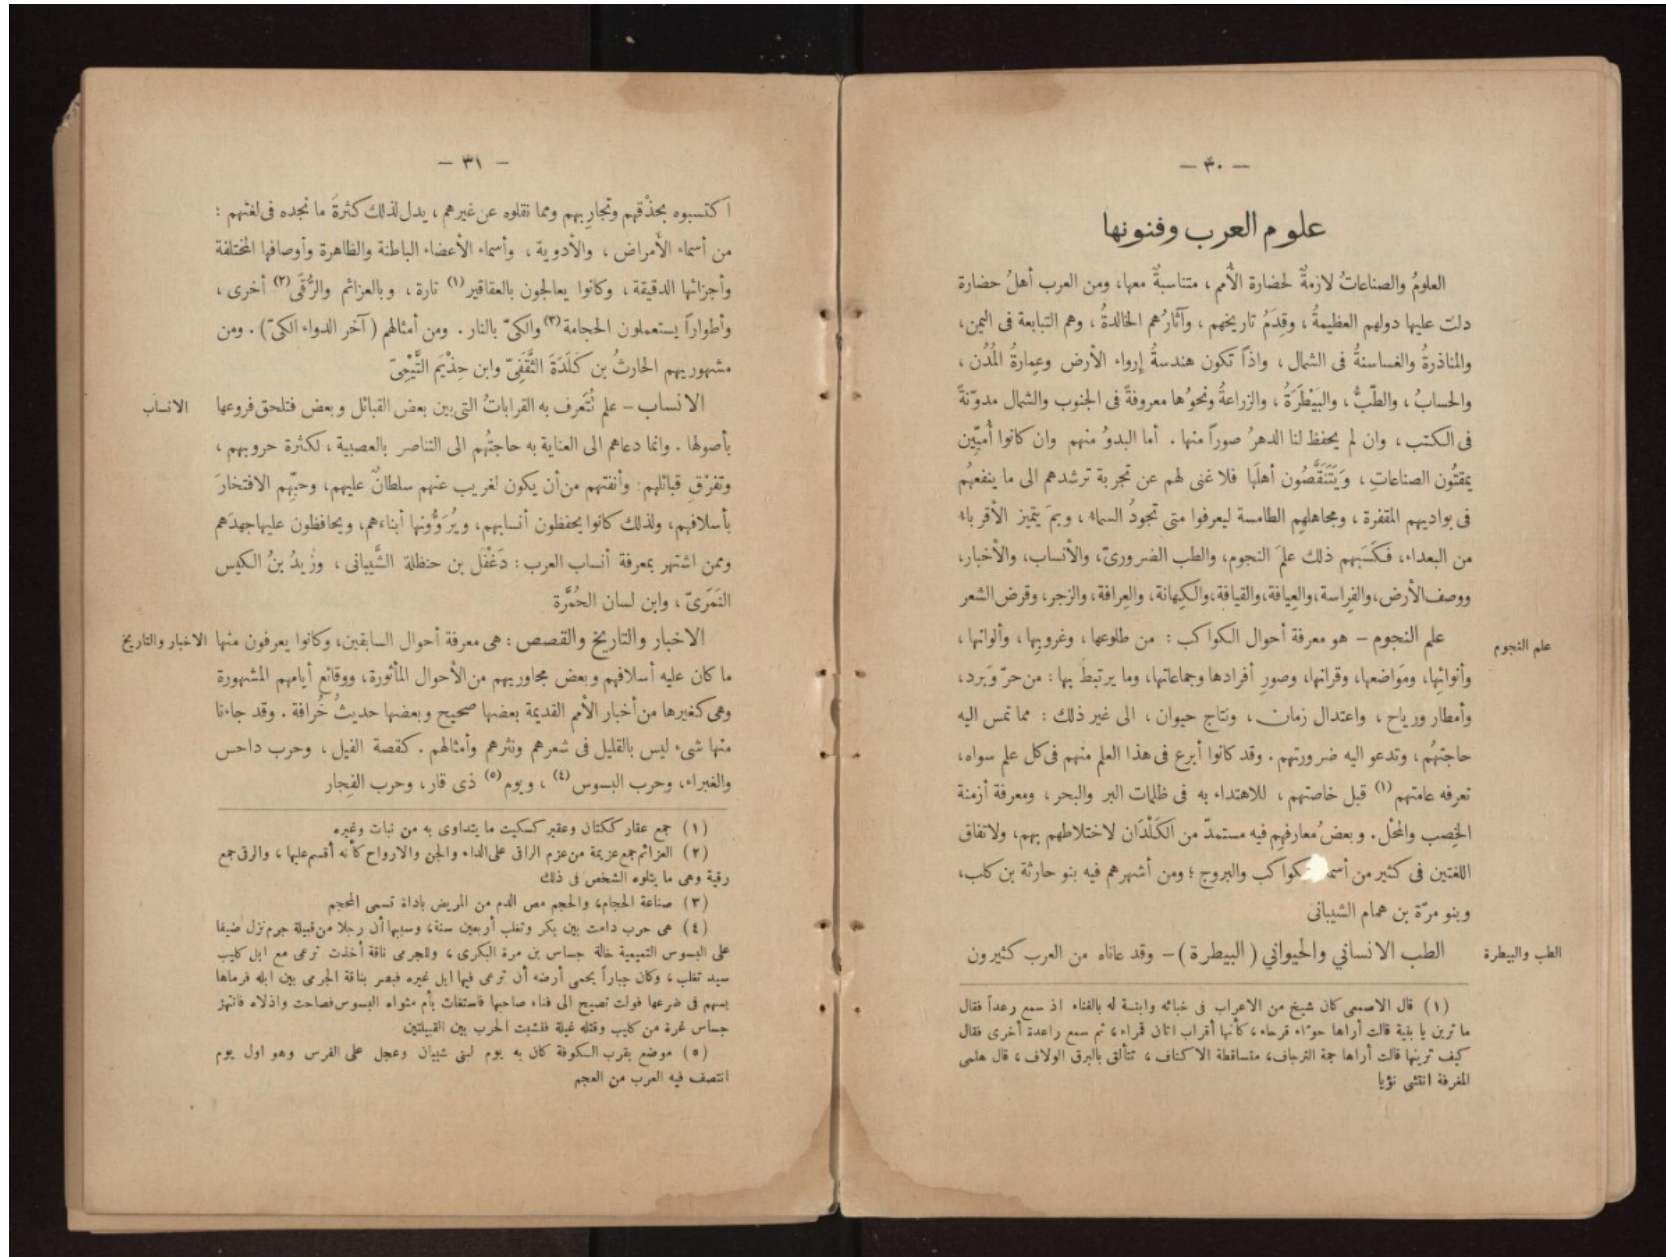 — ٣٠ —
علوم العرب وفنونها
العلومُ والصناعاتُ لازمةٌ لحضارة الأُمم، متناسبةٌ معها، ومن العرب أهلُ حضارة
دلت عليها دولهم العظيمةُ، وقِدَمُ تاريخهم، وآثارُهم الخالدةُ، وهم التبابعة فى اليمن،
والمناذرةُ والغساسنةُ فى الشمال، واذاً تكون هندسةُ إرواء الأرض وعمارةُ المُدُن،
والحسابُ، والطِّبُّ، والبَيْطَرَةُ، والزراعةُ ونحوُها معروفةً فى الجنوب والشمال مدوّنةً
فى الكتب، وان لم يحفظ لنا الدهرُ صوراً منها. أما البدوُ منهم وان كانوا أُمِّيِّين
يمقتُون الصناعاتِ، وَيَتَنَقَّصُون أهلَها فلا غنى لهم عن تجربة ترشدهم الى ما ينفعهُم
فى بواديهم المقفرة، ومجاهلهم الطامسة ليعرفوا متى تجودُ السماء، وبمَ يتميز الأقرباء
من البعداء، فكَسَبهم ذلك علمَ النجوم، والطب الضرورىّ، والأنساب، والأخبار،
ووصف الأرض، والفِراسة، والعِيافة، والقيافة، والكِهانة، والعِرافة، والزجر، وقرض الشعر
علم النجوم
علم النجوم – هو معرفة أحوال الكواكب: من طلوعها، وغروبِها، وألوانها،
وأنوائِها، ومَواضعها، وقرانها، وصورِ أفرادها وجماعاتها، وما يرتبط بها: من حرّ وَبَرد،
وأمطار ورياح، واعتدال زمان، ونتاج حيوان، الى غير ذلك: مما تمس اليه
حاجتهُم، وتدعو اليه ضرورتهم. وقد كانوا أبرع فى هذا العلم منهم فى كل علم سواه،
تعرفه عامتهم (١) قبل خاصتهم، للاهتداء به فى ظلمات البر والبحر، ومعرفة أزمنة
الخِصب والمحْل. وبعضُ معارفهم فيه مستمدّ من الكَلْدَان لاختلاطهم بهم، ولاتفاق
اللغتين فى كثير من والبروج؛ ومن أشهرهم فيه بنو حارثة بن كلب،
وبنو مرّة بن همام الشيبانى
الطب والبيطرة
الطب الانساني والحيواني (البيطرة) – وقد عاناه من العرب كثيرون
(١) قال الاصمعى كان شيخ من الاعراب فى خبائه وابنة له بالفناء اذ سمع رعداً فقال
ما ترين يا بنية قالت أراها حوّاء قرحاء، كأنها أقراب اتان قمراء، ثم سمع راعدة أخرى فقال
كيف ترينها قالت أراها جمة الترجاف، متساقطة الاكناف، تتألق بالبرق الولاف، قال هلمى
المغرفة انتئى نؤيا
— ٣١ —
اكتسبوه بحذْقهم وتجارِبهم ومما نقلوه عن غيرهم، يدل لذلك كثرةُ ما نجده فى لغتهم:
من أسماء الأمراض، والأدوية، وأسماء الأعضاء الباطنة والظاهرة وأوصافها المختلفة
وأجزائها الدقيقة، وكانوا يعالجون بالعقاقير (١) تارة، وبالعزائم والرُّقَى (٢) أخرى،
وأطواراً يستعملون الحجامة (٣) والكىّ بالنار. ومن أمثالهم (آخر الدواء الكىّ). ومن
مشهوريهم الحارثُ بن كَلَدَةَ الثَّقَفِىّ وابن حِذْيَم التَّيْمِىّ
الانساب
الانساب – علم تُتَعرف به القراباتُ التى بين بعض القبائل وبعض فتلحق فروعها
بأصولها. وانما دعاهم الى العناية به حاجتُهم الى التناصر بالعصبية، لكثرة حروبهم،
وتفرُقِ قبائلهم: وأنفتهم من أن يكون لغريب عنهم سلطانٌ عليهم، وحبِّهم الافتخارَ
بأسلافهم، ولذلك كانوا يحفظون أنسابهم، ويُرَوُّونها أبناءهم، ويحافظون عليها جهدَهم
وممن اشتهر بمعرفة أنساب العرب: دَغْفَل بن حنظلة الشَّيبانى، وزيدُ بنُ الكيس
النَمَرىّ، وابن لسان الحُمَّرة
الاخبار والتاريخ
الاخبار والتاريخ والقصص: هى معرفة أحوال السابقين، وكانوا يعرفون منها
ما كان عليه أسلافهم وبعض مجاوريهم من الأحوال المأثورة، ووقائع أيامهم المشهورة
وهى كغيرها من أخبار الأمم القديمة بعضها صحيح وبعضها حديثُ خُرافة. وقد جاءنا
منها شىء ليس بالقليل فى شعرهم ونثرهم وأمثالهم. كقصة الفيل، وحرب داحس
والغبراء، وحرب البسوس (٤)، ويوم (٥) ذى قار، وحرب الفِجار
(١) جمع عقار ككتان وعقير كسكيت ما يتداوى به من نبات وغيره
(٢) العزائم جمع عزيمة من عزم الراقى على الداء والجن والارواح كأنه أقسم عليها، والرقى جمع
رقية وهى ما يتلوه الشخص فى ذلك
(٣) صناعة الحجام، والحجم مص الدم من المريض باداة تسمى المحجم
(٤) هى حرب دامت بين بكر وتغلب أربعين سنة، وسببها أن رجلا من قبيلة جرم نزل ضيفا
على البسوس التميمية خالة جساس بن مرة البكرى، وللجرمى ناقة أخذت ترعى مع ابل كليب
سيد تغلب، وكان جباراً يحمى أرضه أن ترعى فيها ابل غيره فبصر بناقة الجرمى بين ابله فرماها
بسهم فى ضرعها فولت تصيح الى فناء صاحبها فاستغاث بأم مثواه البسوس فصاحت واذلاه فانتهز
جساس غرة من كليب وقتله غيلة فنشبت الحرب بين القبيلتين
(٥) موضع بقرب الكوفة كان به يوم لبنى شيبان وعجل على الفرس وهو اول يوم
انتصف فيه العرب من العجم